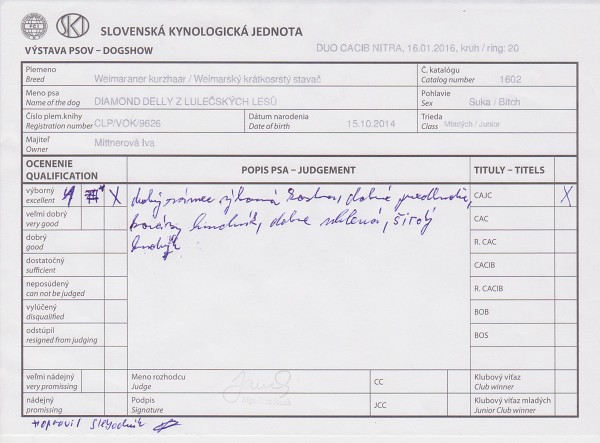 FCI SKJ SLOVENSKÁ KYNOLOGICKÁ JEDNOTA
VÝSTAVA PSOV – DOGSHOW DUO CACIB NITRA, 16.01.2016, kruh / ring: 20
Plemeno
Breed
Weimaraner kurzhaar / Weimarský krátkosrstý stavač
Č. katalógu
Catalog number
1602
Meno psa
Name of the dog
DIAMOND DELLY Z LULEČSKÝCH LESŮ
Pohlavie
Sex
Suka / Bitch
Číslo plem.knihy
Registration number
CLP/VOK/9626
Dátum narodenia
Date of birth
15.10.2014
Trieda
Class
Mladých / Junior
Majiteľ
Owner
Mittnerová Iva
OCENENIE
QUALIFICATION
POPIS PSA – JUDGEMENT
TITULY – TITELS
výborný
excellent
1
X
dobrý
dobré
CAJC
X
veľmi dobrý
very good
dobre
široký
CAC
dobrý
good
R. CAC
dostatočný
sufficient
CACIB
neposúdený
can not be judged
R. CACIB
vylúčený
disqualified
BOB
odstúpil
resigned from judging
BOS
veľmi nádejný
very promissing
Meno rozhodcu
Judge
CC
Klubový víťaz
Club winner
nádejný
promissing
Podpis
Signature
JCC
Klubový víťaz mladých
Junior Club winner